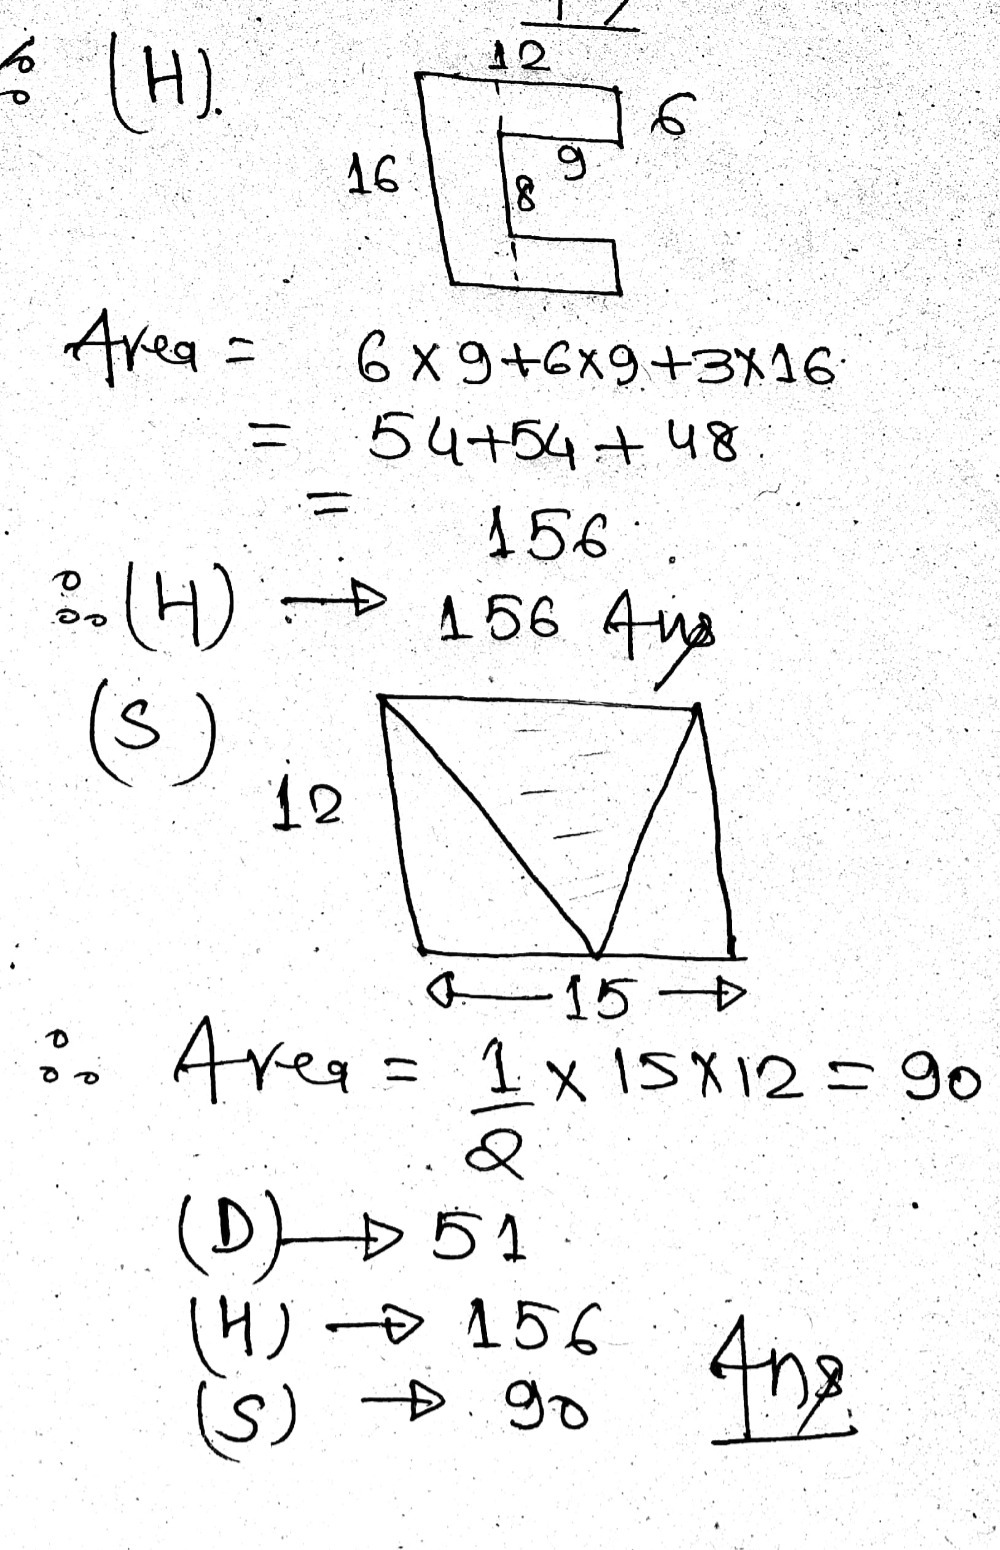 (H).
12
6
9
16
8
Area = 6 × 9 + 6×9 + 3×16
= 54+54 + 48
= 156
∴ (H) → 156 Ans
(S)
12
15
∴ Area = 1/2 × 15 × 12 = 90
(D) → 51
(H) → 156
(S) → 90
Ans